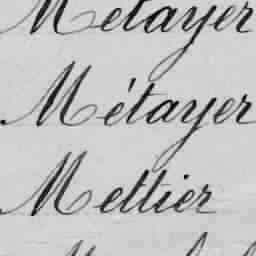 Métayer
Métayer
Mettier